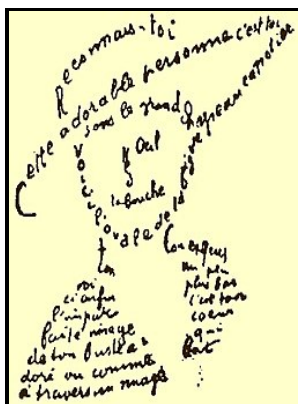 Reconnais-toi
Cette adorable personne c'est toi
sous le grand chapeau canotier
Oeil
Nez
la bouche
Voici l'ovale de ta figure
Ton cou exquis
Voici enfin
l'imparfaite image
de ton buste a
doré vu comme
à travers un nuage
un peu
plus bas
c'est ton
coeur
qui
bat